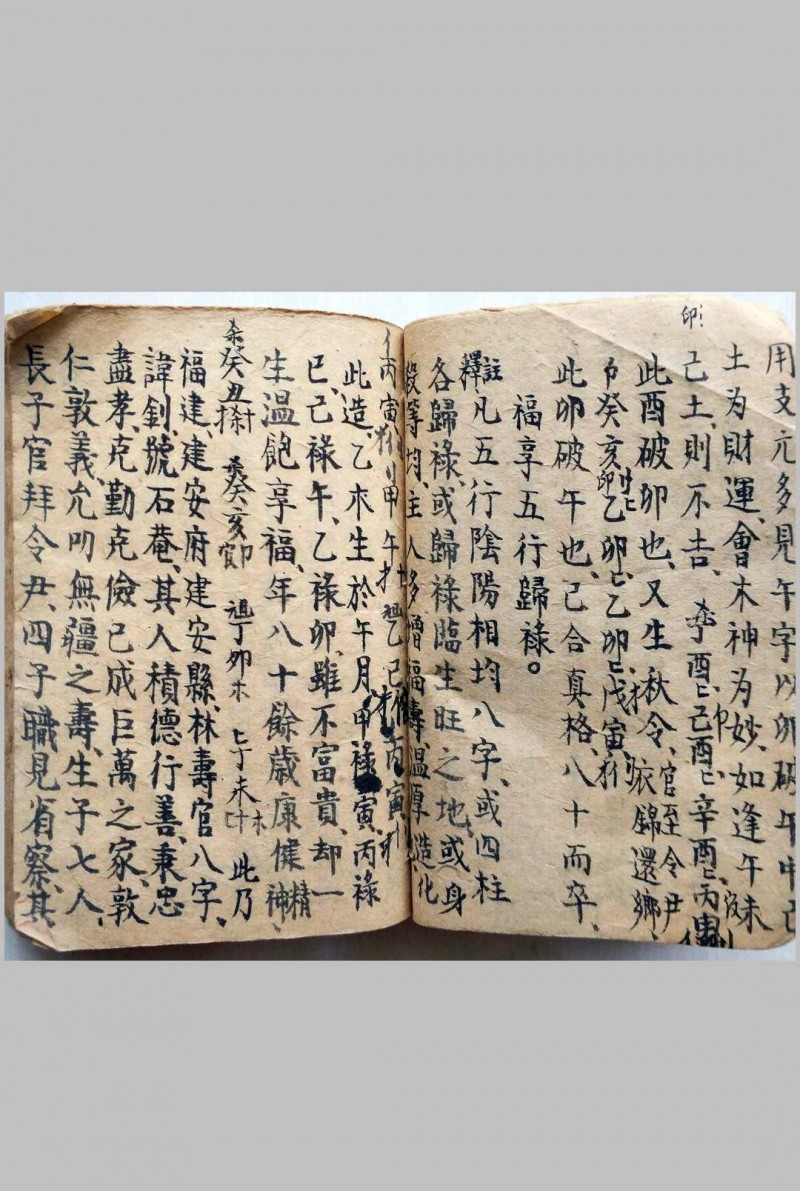 用支元多見午字以卯破午中己
土為財運、會木神為妙、如逢午未
己土、則不吉、丁酉己酉辛酉丙
此酉破卯也、又生秋令、官至令尹衣錦還鄉、
癸亥乙卯、乙卯、戊寅、
此卯破午也、已合真格、八十而卒、
福享五行歸祿。
註釋凡五行陰陽相均八字、或四柱
各歸祿、或歸祿臨生旺之地、或身
殺等均、主人多增福壽溫厚造化
丙寅甲午乙巳丙寅
此造、乙木生於午月、甲祿寅、丙祿
巳、己祿午、乙祿卯、雖不富貴、却一
生溫飽享福、年八十餘歲康健精神
癸丑癸亥丁卯丁未此乃
福建、建安府建安縣、林壽官八字、
諱釗、號石菴、其人積德行善、秉忠
盡孝、克勤克儉已成巨萬之家、敦
仁敦義、允叨無疆之壽、生子七人、
長子官拜令尹、四子職見省察、其